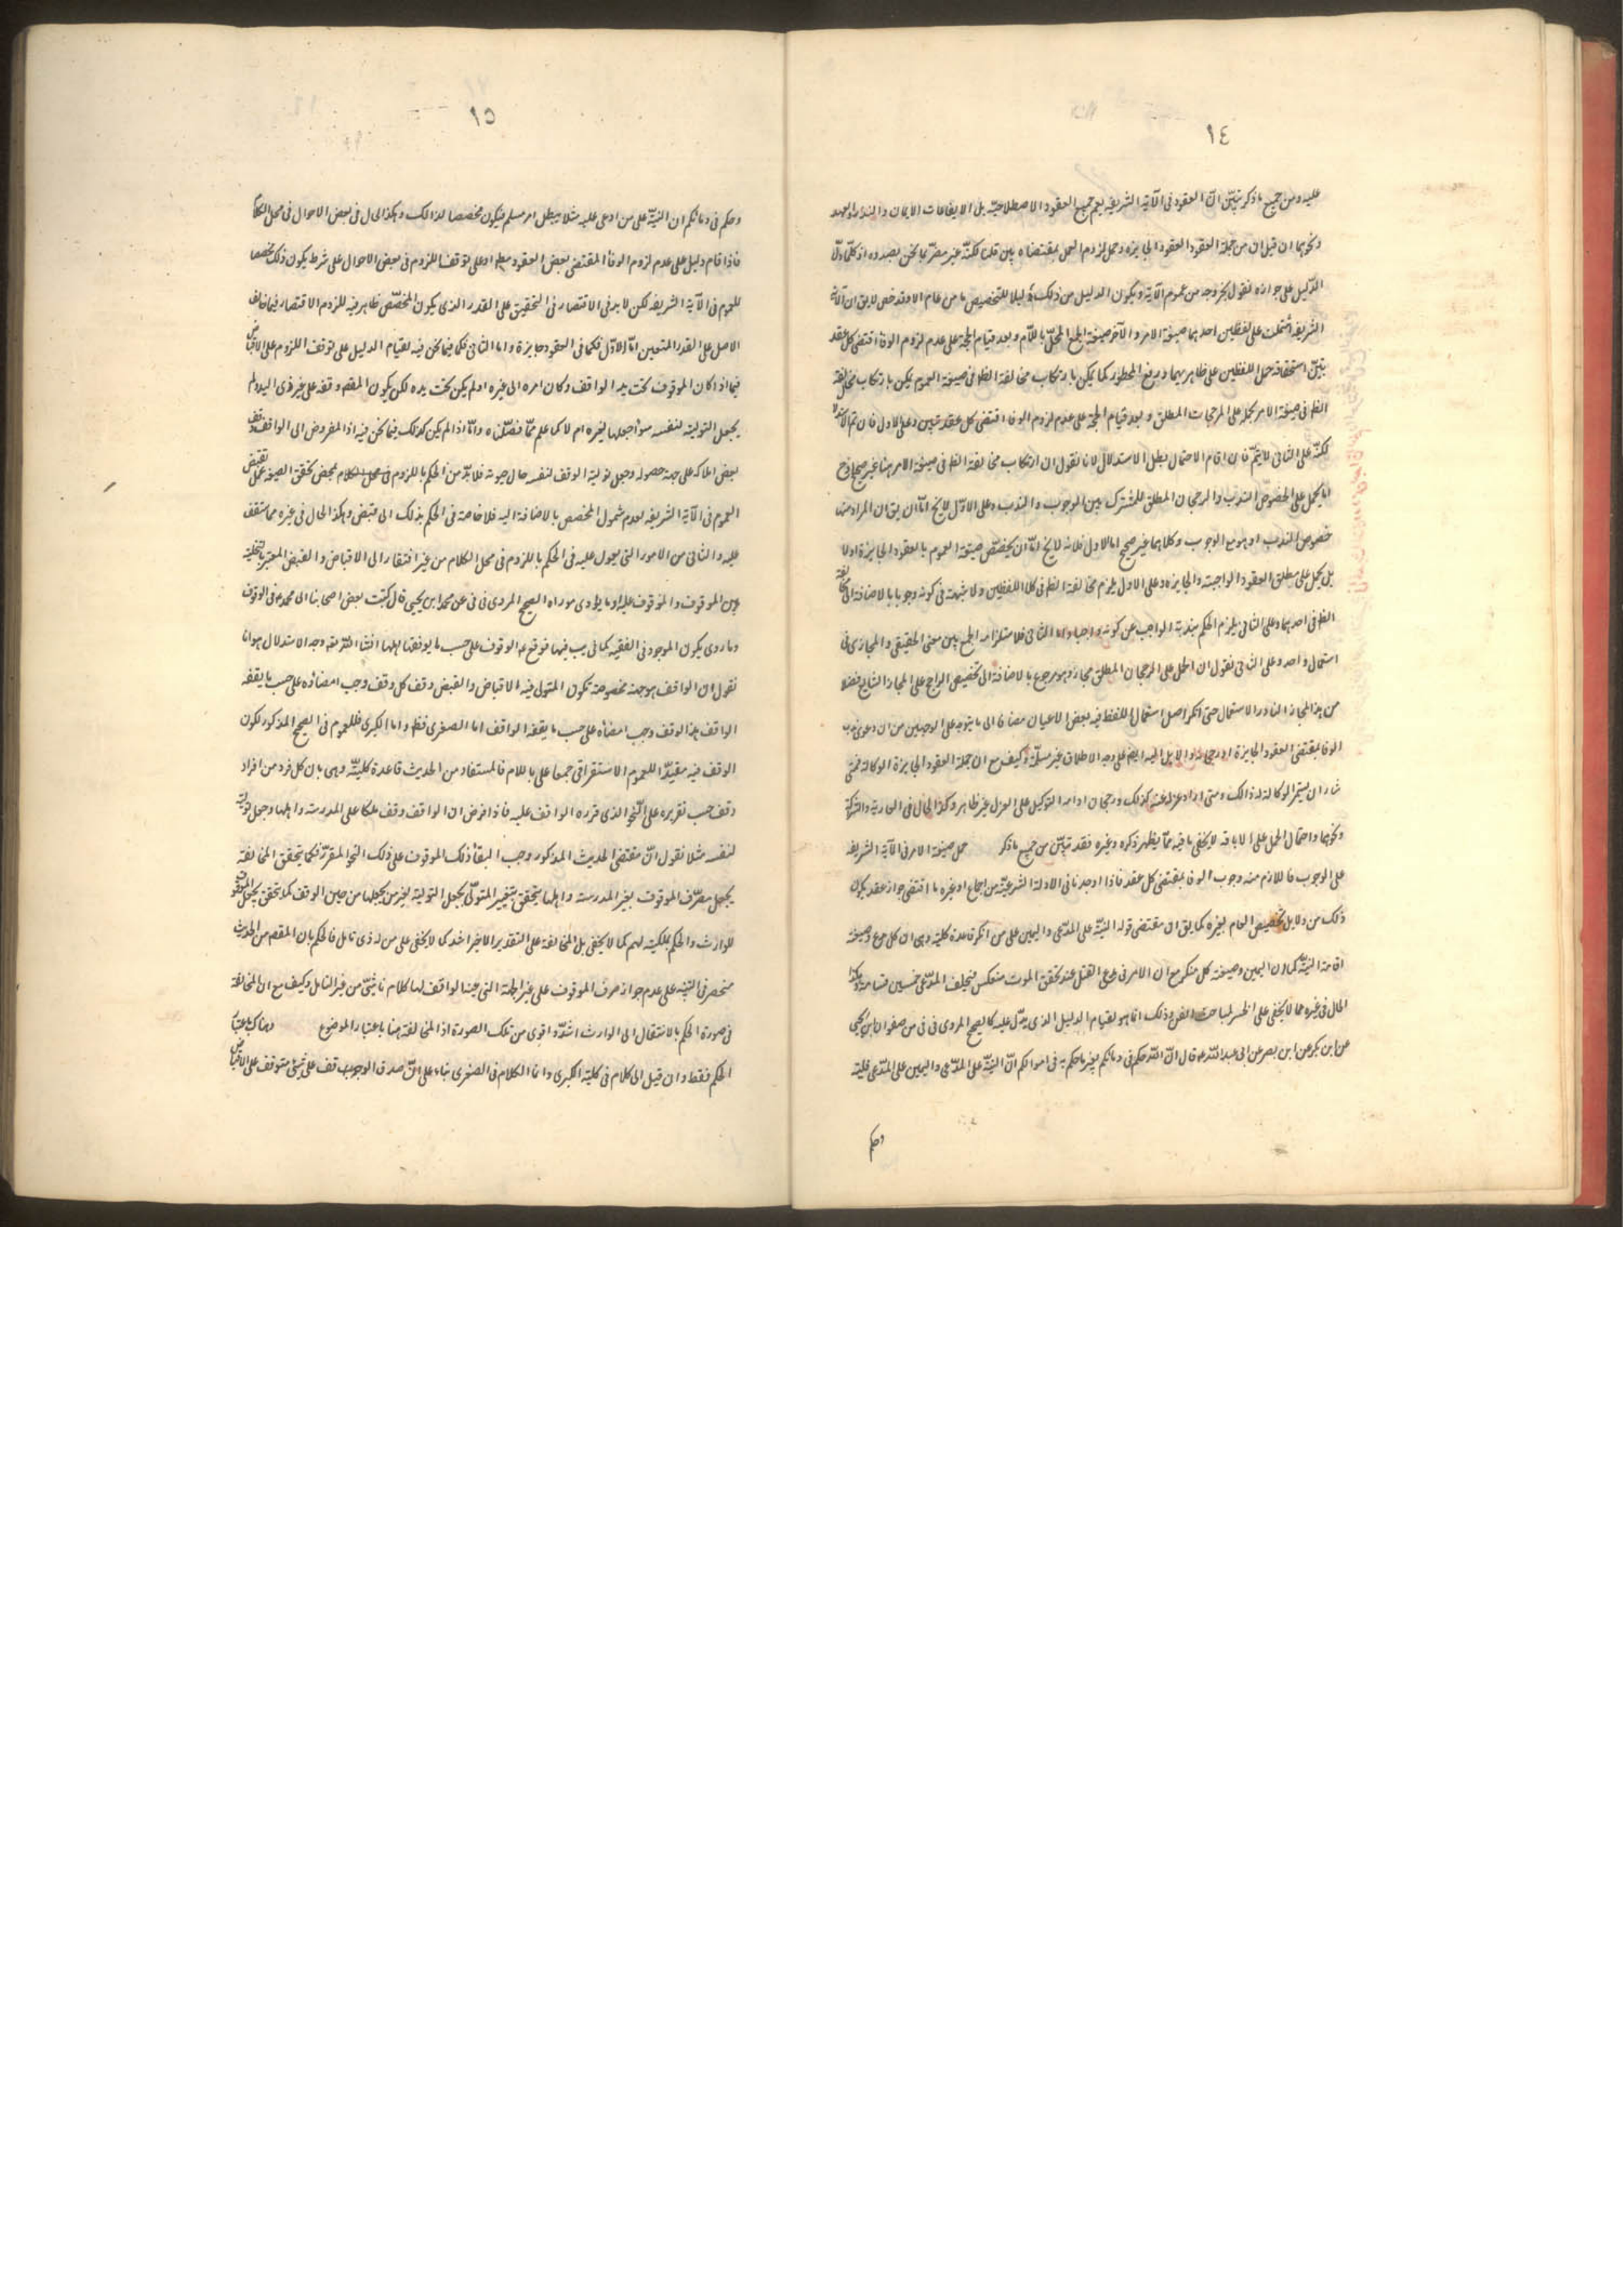 ١٤
عليه ومن جميع ما ذكر تبيّن انّ العقود فى الآية الشريفة يعم جميع العقود الاصطلاحيّة بل الايقاعات الايمان والنذر والعهد
ونحوهما ان قيل ان من جملة العقود العقود الجايزة وحمل لزوم العمل بمقتضاه بيّن قلنا لكنّه غير مضرّ بما نحن بصدده اذ كلّما دلّ
الدّليل على جوازه نقول بخروجه من عموم الآية ويكون الدليل من ذلك دليلا للتخصيص ما من عام الا وقد خص لا يق ان الآية
الشريفة اشتملت على لفظين احدهما صيغة الامر والآخر صيغة الجمع المحلّى باللّام وبعد قيام الحجّة على عدم لزوم الوفا اقتضى كل عقد
حمل اللفظين على ظاهريهما ورفع المحظور كما يمكن بارتكاب مخالفة الظ فى صيغة العموم يمكن بارتكاب مخالفة
الظ فى صيغة الامر بحمل على الرجحان المطلق وبعد قيام الحجة على عدم لزوم الوفا اقتضى كل عقد تبيين وعلى الاول فان تم الاستدلال
لكنّه على الثانى لا يتمّ فان اقام الاحتمال بطل الاستدلال لانا نقول ان ارتكاب مخالفة الظ فى صيغة الامر هنا غير صحيح اذ ح
اما يحمل على الخصوص الندب والرجحان المطلق المشترك بين الوجوب والندب وعلى الاوّل لا يخ امّا ان يق ان المراد منها
خصوص الندب او هو مع الوجوب وكلاهما غير صحيح اما الاول فلانه لا يخ امّا ان يخصّص صيغة العموم بالعقود الجايزة او لا
بل يحمل على مطلق العقود الواجبة والجايزة وعلى الاول يلزم مخالفة الظ فى كلا اللفظين ولا شبهة فى كونه وجوبا بالاضافة الى مخالفة
الظ فى احدهما وعلى الثانى يلزم الحكم بندبة الواجب عن كونه واجبا واما الثانى فلاستلزامه الجمع بين معنى الحقيقى والمجازى فى
استعمال واحد وعلى الثانى نقول ان الحمل على الرجحان المطلق مجاز وهو مرجوع بالاضافة الى تخصيص الراجح على المجاز الشايع فضلا
من هذا المجاز النادر الاستعمال حتى انكر اصل استعمال اللفظ فيه بعض الاعيان مضافا الى ما يتوجه على الوجهين من ان دعوى ندب
الوفا بمقتضى العقود الجايزة او رجحانه والا بل اليه ايض على وجه الاطلاق غير مسلّمة وكيف مع ان جملة العقود الجايزة الوكالة فمتى
شاء ان يستمر الوكالة له ذالك ومتى اراد عزله عنه كذلك ورجحان ادامه التوكيل على العزل غير ظاهر وكذا الحال فى العارية والشركة
ونحوهما واحتمال الحمل على الاباحة لا يخفى ما فيه ممّا يظهر ذكره وغيره فقد تبيّن من جميع ما ذكر حمل صيغة الامر فى الآية الشريفة
على الوجوب فاللازم منه وجوب الوفا بمقتضى كل عقد فاذا وجدنا فى الادلة الشرعيّة من اجماع او غيره ما اقتضى جواز عقد يكون
ذلك من دلايل تخصيص العام بغيره كما يق ان مقتضى قوله البيّنة على المدّعى واليمين على من انكر قاعدة كلية وهى ان كل مدع وصيغة
اقامة البيّنة كما ان اليمين وصيغة كل منكر مع ان الامر فى القتل عند تحقق الموت منعكس فيحلف المدّعى خمسين قسامة وهكذا
الحال فى غيره مما لا يخفى على لمباحث الفن وذلك انما هو لقيام الدليل الذى يدلّ عليه كالصحيح المروى فى فى من صفوان ابن يحيى
عن ابن بكير عن ابى بصير عن ابى عبد اللّه ع قال انّ اللّه حكم فى دمائكم بغير ما حكم به فى اموالكم انّ البيّنة على المدّعى واليمين على المدّعى عليه
وحكم
١٥
وحكم فى دمائكم ان البيّنة على من ادعى عليه مثلا يبطل امر مسلم فيكون مخصصا لذالك وهكذا الحال فى بعض الاحوال فى محل الكلام
فاذا قام دليل على عدم لزوم الوفا المقتضى بعض العقود او على توقف اللزوم فى بعض الاحوال على شرط يكون ذلك مخصصا
للعموم فى الآية الشريفة لكن لا بد فى الاقتصار فى التحقيق على القدر الذى يكون المخصّص ظاهر فيه للزوم الاقتصار فيما خالف
الاصل على القدر المتعين امّا الاوّل فكما فى العقود جايزة واما الثانى فكما فيما نحن فيه لقيام الدليل على توقف اللزوم على الاقباض
فيما اذا كان الموقوف تحت يد الواقف وكان امره الى غيره او لم يكن تحت يده لكن يكون المقصود وقفه على غير ذى اليد ولم
يجعل التولية لنفسه سواء جعلها لغيره ام لا كما علم ممّا فصّلناه وامّا اذا لم يكن كذلك فيما نحن فيه اذ المفروض الى الواقف وقف
بعض املاكه على جهة حصوله وجعل تولية الوقف لنفسه حال حيوته فلا بدّ من الحكم باللزوم فى محل الكلام بمحض تحقق الصيغة عملا بمقتضى
العموم فى الآية الشريفة لعدم شمول المخصص بالاضافة اليه فلا حاجة فى الحكم بذلك الى قبض وهكذا الحال فى غيره مما ستقف
عليه والثانى من الامور التى يعول عليه فى الحكم باللزوم فى محل الكلام من غير افتقار الى الاقباض والقبض المعتبر بالتخلية
بين الموقوف والموقوف عليه الصحيح المروى فى فى عن محمد ابن يحيى قال كتبت بعض اصحابنا الى محمد ع فى الوقوف
وما روى يكون الموجود فى الفقيه كما فى يب فيها فوقع ع الوقوف على حسب ما يوقفها اهلها انشاء اللّه تع وجه الاستدلال هو انا
نقول ان الواقف بوجهة مخصوصة تكون المتولى فيه الاقباض والقبض وقف كل وقف وجب امضاؤه على حسب ما يقفه
الواقف هذا الوقف وجب امضاه على حسب ما يقفه الواقف اما الصغرى فظ واما الكبرى فللعموم فى الصحيح المذكور لكون
الوقف فيه مفيدا للعموم الاستغراقى جمعا على باللام فالمستفاد من الحديث قاعدة كليّة وهى بان كل فرد من افراد
وقف حسب تقريره على النّحو الذى قرره الواقف عليه فاذا فرض ان الواقف وقف ملكا على المدرسة واهلها وجعل توليته
لنفسه مثلا نقول انّ مقتضى الحديث المذكور وجب ابقاء ذلك الموقوف على ذلك النحو المقرّر فكما يتحقق المخالفة
يجعل مصرّف الموقوف بغير المدرسة واهلها يتحقق بتغيير المتولّى بجعل التولية لغير من يجعلها من حين الوقف كما يتحقق بجعل الموقوف
للوارث والحكم بملكيته لهم كما لا يخفى بل المخالفة على التقدير الاخير اشد كما لا يخفى على من له ذى تامل فالحكم بان المقصود من الحديث
منحصر فى التنبيه على عدم جواز صرف الموقوف على غير الجهة التى عينها الواقف لها كلام ناشىّ من غير التامل وكيف مع ان المخالفة
فى صورة الحكم بالانتقال الى الوارث اشدّ واقوى من تلك الصورة اذ المخالفة هنا باعتبار الموضوع وهناك باعتبار
الحكم فقط وان قيل الكلام فى كلية الكبرى وانما الكلام فى الصغرى بناء على انّ صدق الوقف على شىء متوقف على الاقباض